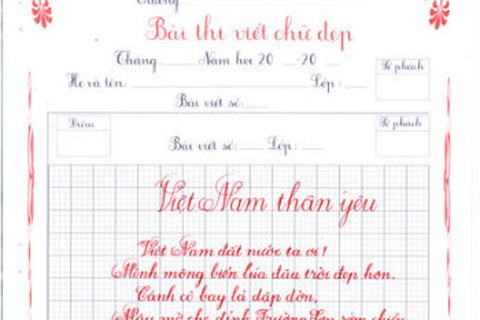 Trường
Bài thi viết chữ đẹp
Tháng Năm học 20 -20
Số phách
Họ và tên: Lớp:
Bài viết số:
Điểm
Số phách
Bài viết số: Lớp:
Việt Nam thân yêu
Việt Nam đất nước ta ơi!
Mênh mông biển lúa đâu trời đẹp hơn.
Cánh cò bay lả dập dờn,
Mây mờ che đỉnh Trường Sơn sớm chiều.